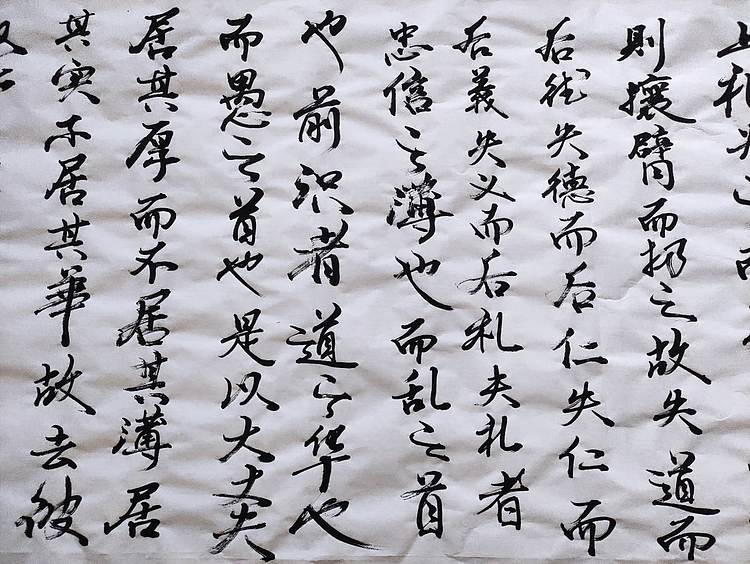 上礼为之而
則攘臂而扔之故失道而
后德失德而后仁失仁而
后義失义而后礼夫礼者
忠信之薄也而乱之首
也前识者道之华也
而愚之首也是以大丈夫
居其厚而不居其薄居
其实不居其華故去彼